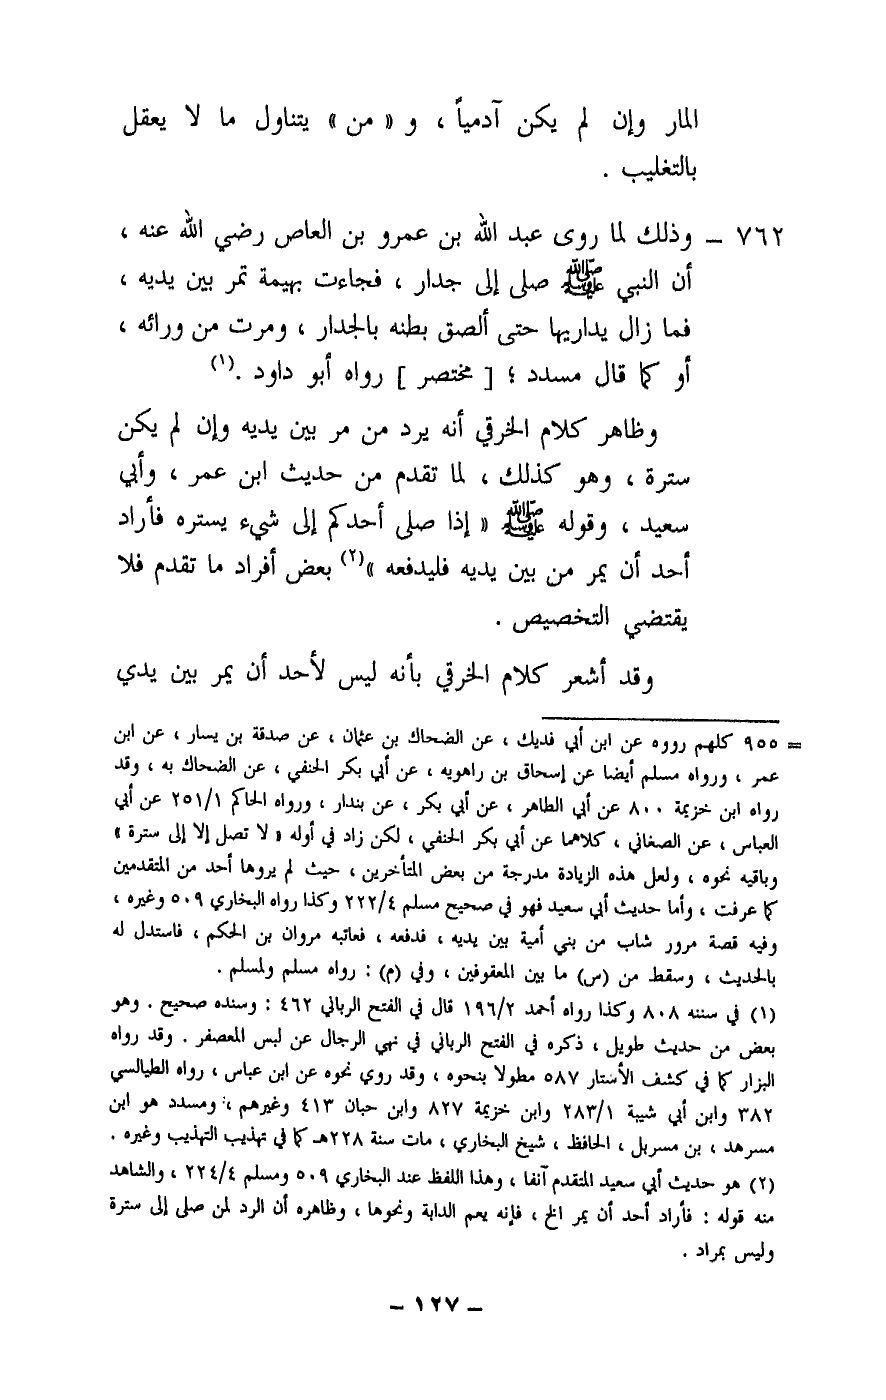 المار وإن لم يكن آدمياً ، و « من » يتناول ما لا يعقل
بالتغليب .
٧٦٢ – وذلك لما روى عبد الله بن عمرو بن العاص رضي الله عنه ،
أن النبي ﷺ صلى إلى جدار ، فجاءت بهيمة تمر بين يديه ،
فما زال يداريها حتى ألصق بطنه بالجدار ، ومرت من ورائه ،
أو كما قال مسدد ؛ [ مختصر ] رواه أبو داود .(١)
وظاهر كلام الخرقي أنه يرد من مر بين يديه وإن لم يكن
سترة ، وهو كذلك ، لما تقدم من حديث ابن عمر ، وأبي
سعيد ، وقوله ﷺ « إذا صلى أحدكم إلى شيء يستره فأراد
أحد أن يمر من بين يديه فليدفعه »(٢) بعض أفراد ما تقدم فلا
يقتضي التخصيص .
وقد أشعر كلام الخرقي بأنه ليس لأحد أن يمر بين يدي
= ٩٥٥ كلهم رووه عن ابن أبي فديك ، عن الضحاك بن عثمان ، عن صدقة بن يسار ، عن ابن
عمر ، ورواه مسلم أيضا عن إسحاق بن راهويه ، عن أبي بكر الحنفي ، عن الضحاك به ، وقد
رواه ابن خزيمة ٨٠٠ عن أبي الطاهر ، عن أبي بكر ، عن بندار ، ورواه الحاكم ٢٥١/١ عن أبي
العباس ، عن الصغاني ، كلاهما عن أبي بكر الحنفي ، لكن زاد في أوله « لا تصل إلا إلى سترة »
وباقيه نحوه ، ولعل هذه الزيادة مدرجة من بعض المتأخرين ، حيث لم يروها أحد من المتقدمين
كما عرفت ، وأما حديث أبي سعيد فهو في صحيح مسلم ٢٢٢/٤ وكذا رواه البخاري ٥٠٩ وغيره ،
وفيه قصة مرور شاب من بني أمية بين يديه ، فدفعه ، فعاتبه مروان بن الحكم ، فاستدل له
بالحديث ، وسقط من (س) ما بين المعقوفين ، وفي (م) : رواه مسلم ولمسلم .
(١) في سننه ٨٠٨ وكذا رواه أحمد ١٩٦/٢ قال في الفتح الرباني ٤٦٢ : وسنده صحيح . وهو
بعض من حديث طويل ، ذكره في الفتح الرباني في نهي الرجال عن لبس المعصفر . وقد رواه
البزار كما في كشف الأستار ٥٨٧ مطولا بنحوه ، وقد روي نحوه عن ابن عباس ، رواه الطيالسي
٣٨٢ وابن أبي شيبة ٢٨٣/١ وابن خزيمة ٨٢٧ وابن حبان ٤١٣ وغيرهم ، ومسدد هو ابن
مسرهد ، بن مسربل ، الحافظ ، شيخ البخاري ، مات سنة ٢٢٨هـ كما في تهذيب التهذيب وغيره .
(٢) هو حديث أبي سعيد المتقدم آنفا ، وهذا اللفظ عند البخاري ٥٠٩ ومسلم ٢٢٤/٤ ، والشاهد
منه قوله : فأراد أحد أن يمر الخ ، فإنه يعم الدابة ونحوها ، وظاهره أن الرد لمن صلى إلى سترة
وليس بمراد .
– ١٢٧ –